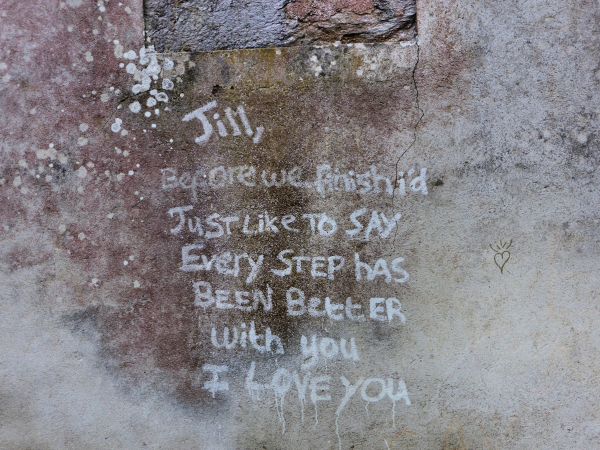 Jill,
Before we finish i'd
JUST LIKE TO SAY
EVERY STEP HAS
BEEN BETTER
with you
I LOVE YOU